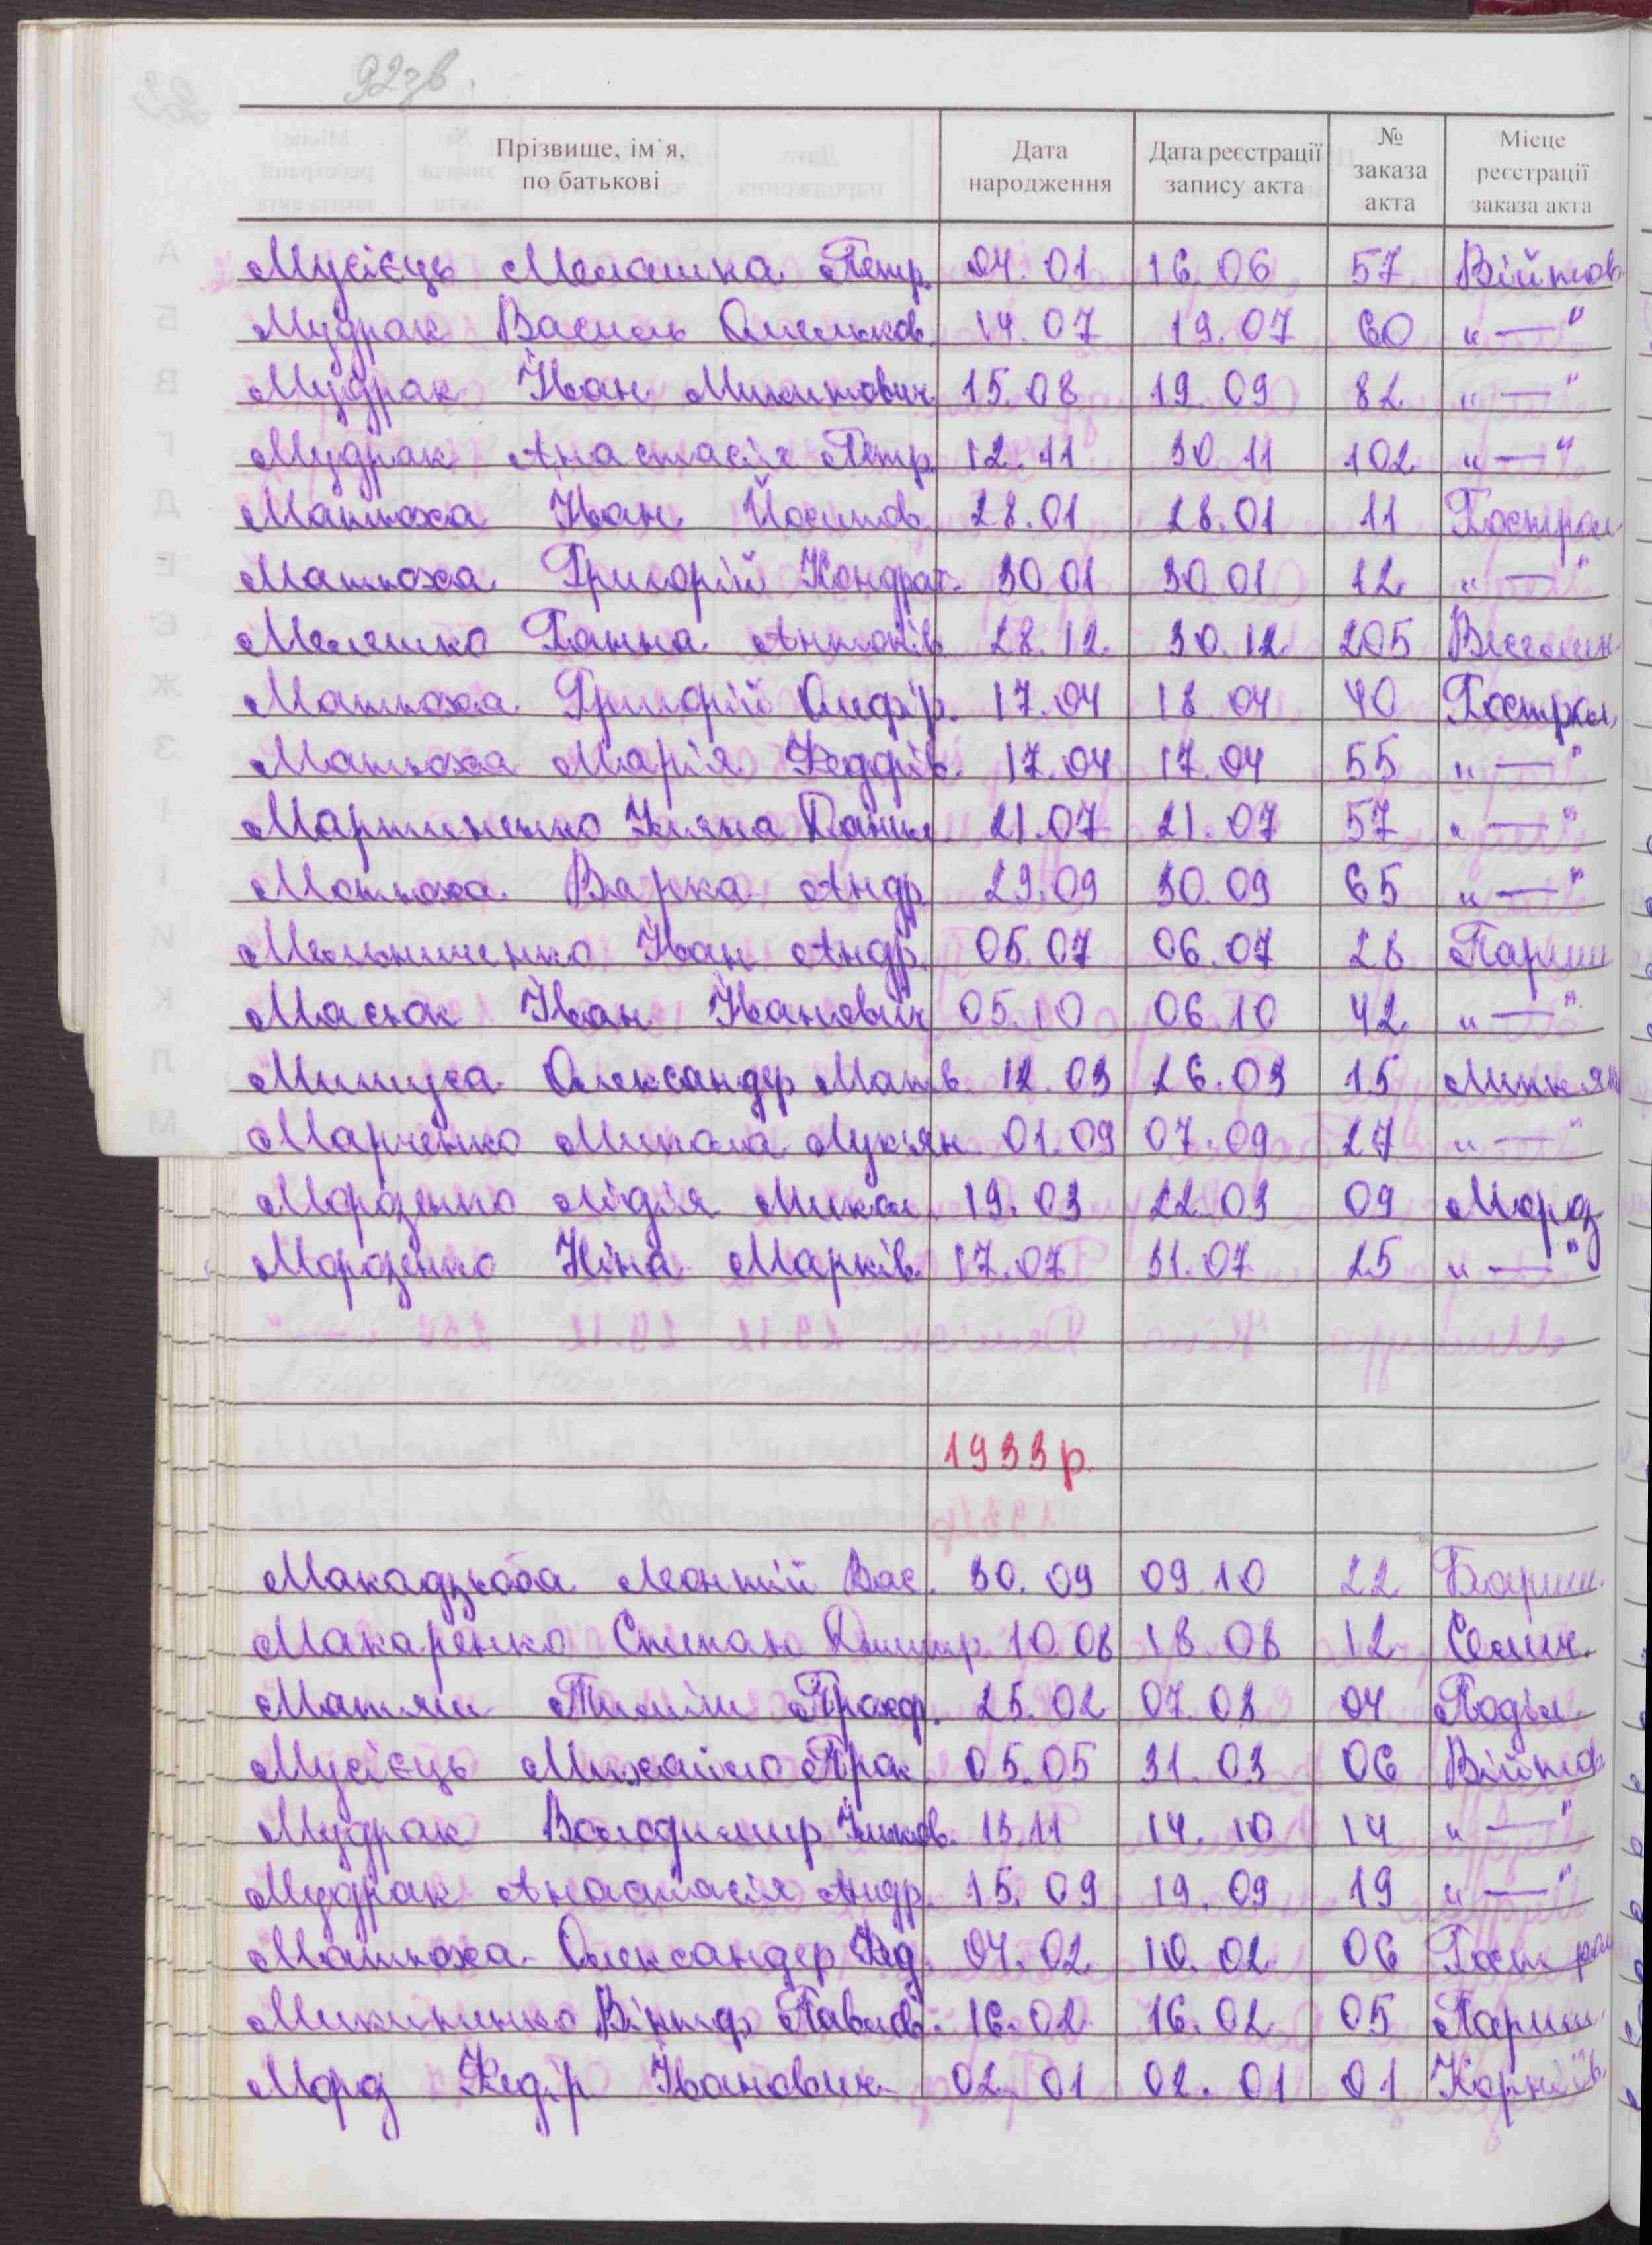 92зв.
Прізвище, ім`я, по батькові | Дата народження | Дата реєстрації запису акта | № заказа акта | Місце реєстрації заказа акта
Мусієць Мелашка Петр. 04.01 16.06 57 Війтов.
Мудрак Василь Омельков. 14.07 19.07 60 "—"
Мудрак Іван Микитович 15.08 19.09 82 "—"
Мудрак Анастасія Петр. 12.11 30.11 102 "—"
Матюха Іван Йосипов. 28.01 28.01 11 Гострол.
Матюха Григорій Кондрат. 30.01 30.01 12 "—"
Мелешко Ганна Антонів. 28.12. 30.12 205
Матюха Григорій Онофр. 17.04 18.04 40 Гострол.
Матюха Марія Федорів. 17.04 17.04 55 "—"
Мартиненко Уляна Данил. 21.07 21.07 57 "—"
Матюха Варка Андр. 29.09 30.09 65 "—"
Мельниченко Іван Андр. 05.07 06.07 28 Париш.
Масюк Іван Іванович 05.10 06.10 42 "—"
Александер Матв. 12.03 26.03 15
Марченко Микола Лук'ян. 01.09 07.09 27 "—"
Морозенко Лідія Микол. 19.03 22.03 09 Мороз.
Морозенко Ніна Марків. 17.07 31.07 25 "—"
1933 р.
Макадзьоба Леонтій Вас. 30.09 09.10 22
Макаренко Степан Дмитр. 10.08 18.08 12 Селич.
Матяш Тиміш Прокоф. 25.02 07.03 04 Поділ.
Мусієць Михайло Прок. 05.05 31.03 06 Війтов.
Мудрак Володимир 13.11 14.10 14 "—"
Мудрак Анастасія Андр. 15.09 19.09 19 "—"
Матюха Олександер Фед. 04.02 10.02 06 Гострол
Микитенко Віктор Павлов. 16.02 16.02 05 Париш.
Мороз Федір Іванович 02.01 02.01 01 Корніїв.